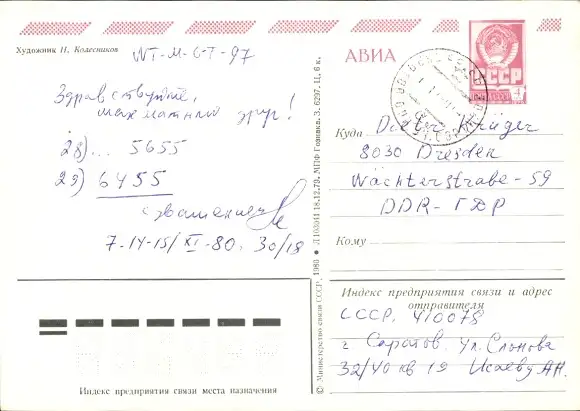 Художник П. Колесников
WT-M-GT-97
Здравствуйте,
шахматный друг!
28)... 5655
29) 6455
с уважением
7.14-15/XI-80. 30/18
© Министерство связи СССР, 1980 ● Л 103011 18.12.79. МПФ Гознака. З. 6297. Ц. 6 к.
АВИА
СССР
Куда Dieter Krüger
8030 Dresden
Wächterstraße-59
DDR-ГДР
Кому
Индекс предприятия связи и адрес
отправителя
СССР, 410078
г Саратов, ул. Слонова
32/40 кв 19 Исаеву АН.
Индекс предприятия связи места назначения